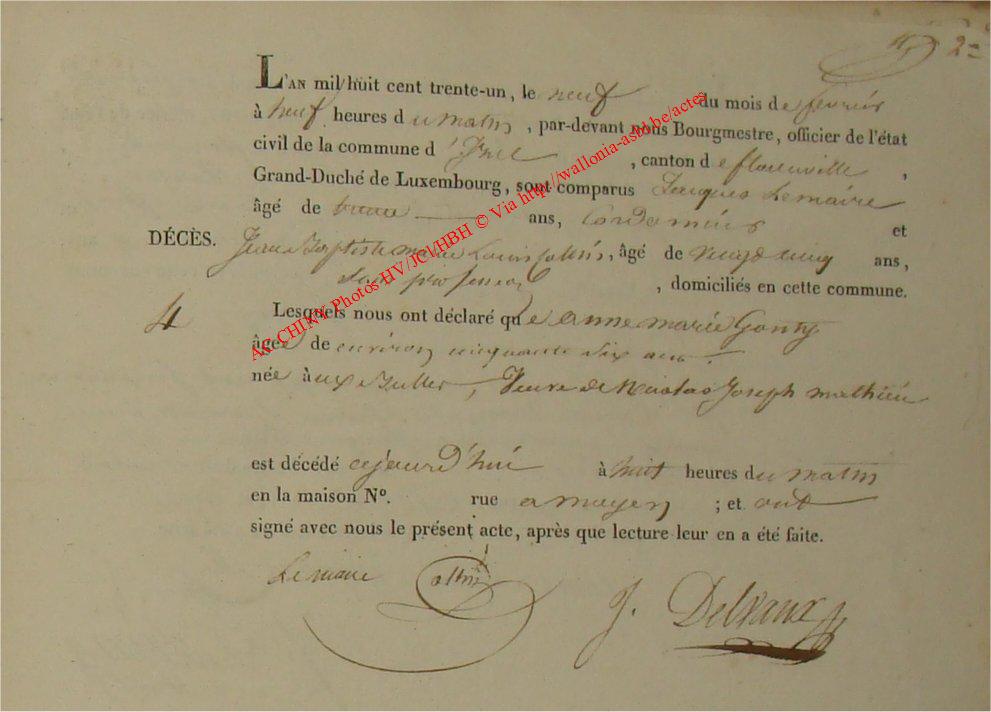 2
L'AN mil huit cent trente-un, le neuf du mois de fevrier
à neuf heures du matin, par-devant nous Bourgmestre, officier de l'état
civil de la commune d'Izel, canton de florenville,
Grand-Duché de Luxembourg, sont comparus Jacques Lemaire
âgé de trente ans, Cordonnier et
DÉCÈS. Jean Baptiste Louis, âgé de vingt cinq ans,
sans profession, domiciliés en cette commune.
4 Lesquels nous ont déclaré que anne marie Gonty
âgée de environ cinquante six ans.
née aux Bulles, Veuve de Nicolas Joseph mathieu
est décédé cejourd'hui à huit heures du matin
en la maison Nº. rue a moyen ; et ont
signé avec nous le présent acte, après que lecture leur en a été faite.
Lemaire J. Delvaux
An CHINY Photos HV/JCl/HBH © Via http://wallonia-asbl.be/actes